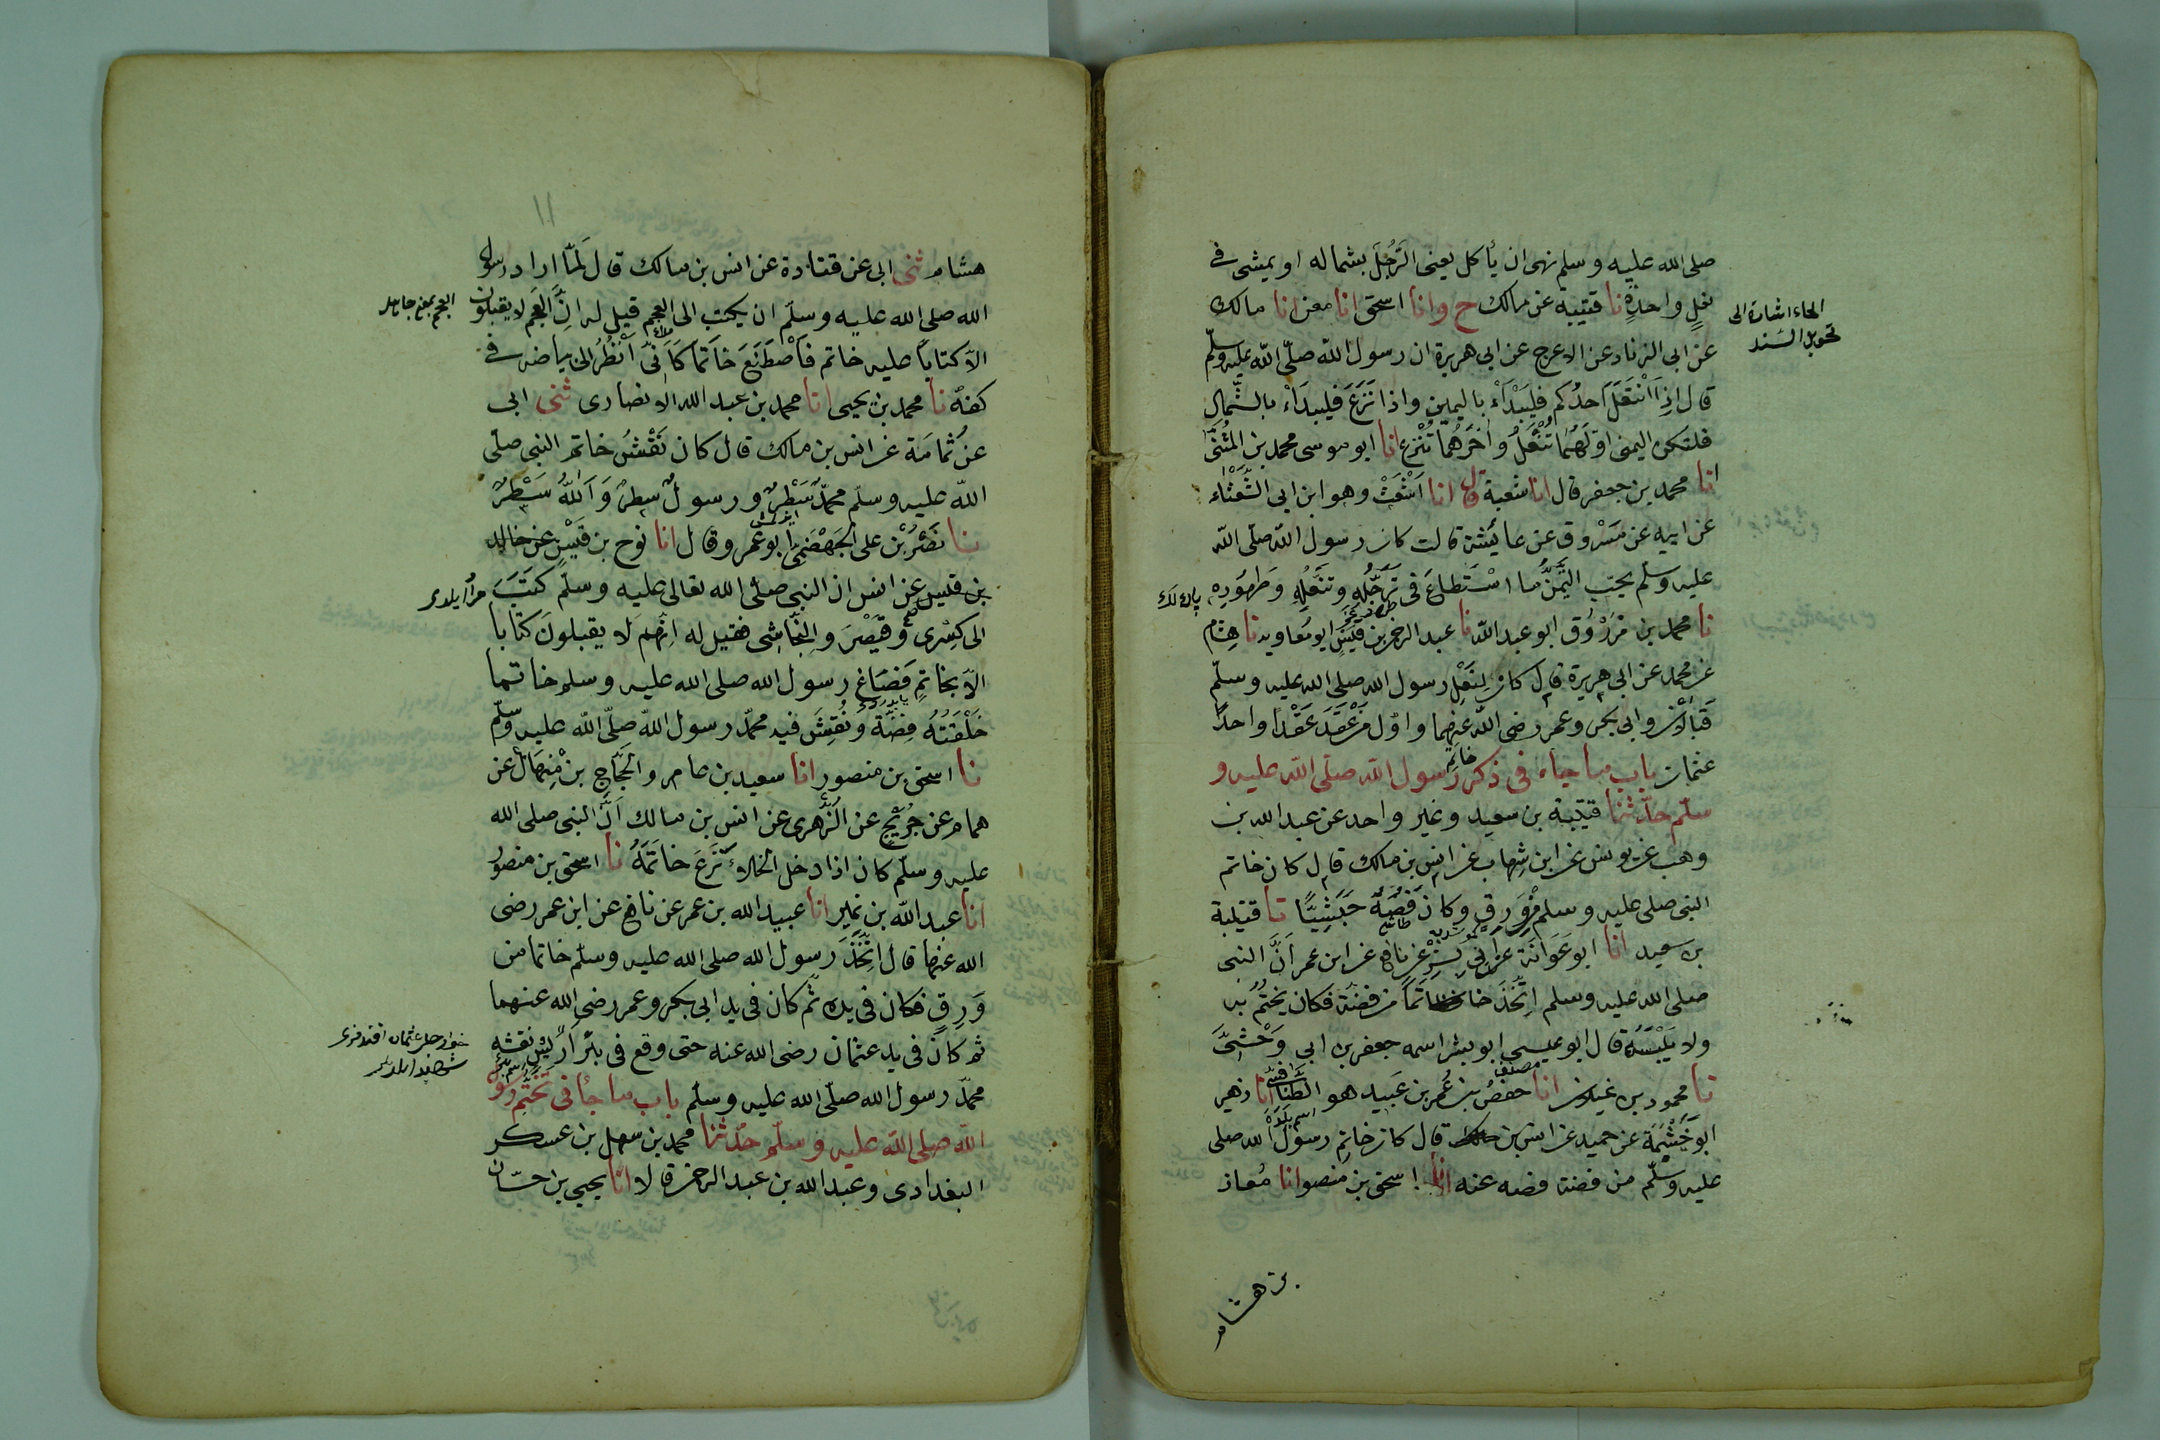 صلى الله عليه وسلم نهى ان يأكل يعنى الرَّجُلَ بشماله او يمشى فى
نعلٍ واحدةٍ نا قتيبة عن مالك ح وانا اسحق انا معن انا مالك
عن ابى الزناد عن الاعرج عن ابى هريرة ان رسول الله صلّى الله عليه وسلّم
قال اِذَا انْتَعَلَ اَحدُكم فليَبْدَأْ باليمين واذا نَزَعَ فليبدَاءْ بالشّمال
فلتكن اليمنى اوّلَهُما تُنْعَلُ واٰخرَهُما تُنْزع انا ابو موسى محمد بن المُثَنَّى
انا محمد بن جعفر قال انا شعبة قال انا اَشْعَثْ وهو ابن ابى الشَّعْثَاء
عن ابيه عن مَسْروق عن عائشة قالت كان رسول الله صلّى الله
عليه وسلّم يحبّ التَّيَمُّنَ ما اسْتَطاعَ فى تَرَجُّلِهِ وتنَعُّلِهِ وَطهُورِهِ
نا محمد بن مَرْزُوْق ابو عبد الله نا عبد الرحمن بن قَيْسٍ ابو مُعاويه نا هِشام
عن محمد عن ابى هريرة قال كان لِنَعْلِ رسول الله صلى الله عليه وسلّم
قَبَالَانِ وابى بكر وعمر رضى الله عنهما واوّل مَنْ عَقَدَ عَقْدًا واحدًا
عثمان باب ما جاء فى ذكر خاتم رسول الله صلّى الله عليه و
سلّم حدّثنا قتيبة بن سعيد وغير واحد عن عبد الله بن
وهب عن يونس عن ابن شِهاب عن انس بن مالك قال كان خاتم
النبى صلى عليه وسلم مِنْ وَرِقٍ وكان فَصُّهُ حَبَشِيًّا نا قتيبة
بن سعيد انا ابو عَوَانَة عن ابى بِشْرٍ عن نافع عن ابن عمر اَنَّ النبى
صلى الله عليه وسلم اِتَّخَذَ خاتَمًا من فضّة فكان يختُمُ به
ولا يَلْبَسُهُ قال ابو عيسى ابو بشر اسمه جعفر بن ابى وَحْشِيَّ
نا محمود بن غيلان انا حفصُ بن عُمر بن عَبيد هو الطَّنافسىّ انا زهير
ابو خَيْثَمَة عن حميد عن انس بن مالك قال كان خاتم رسول الله صلى
عليه وسلّم من فضة فصه عنه انا اسحق بن منصور انا مُعاذ
الحاء اشارة الى
تحويل السّند
بن هشام
١١
هشام ثنى ابى عن قتادة عن انس بن مالك قال لَمَّا اراد رسول
الله صلى الله عليه وسلّم ان يكتب الى العجم قيل له انّ العَجَم لا يقبلون
الاّ كتابًا عليه خاتم فاَصْطَنَعَ خَاتمًا كَاَنّىّ اَنْظُرُ الى بياضه فى
كفه نا محمد بن يحيى انا محمد بن عبد الله الانصارى ثنى ابى
عن ثمامَة عن انس بن مالك قال كان نَقْشُ خاتم النبى صلّى
الله عليه وسلّم محمّدٌ سَطْرٌ ورسولٌ سطرٌ وَاَللّٰهُ سَطْرٌ
نا نَصْرُ بْن على الجَهْضَمِىّ ابو عمرو قال انا نوح بن قَيْسٍ عن خالد
بن قيس عن انس ان النبى صلّى الله تعالى عليه وسلّم كَتَبَ
الى كِسْرٰى وَقَيْصَرَ والنجّاشى فقيل له اِنّهُم لَا يقبلونَ كتابا
الاّ بخاتمٍ فَصَاغَ رسول الله صلى الله عليه وسلم خاتما
حَلْقَتُهُ فِضّة وَنُقِشَ فيه محمّد رسول الله صلّى الله عليه وسلّم
نا اسحق بن منصور انا سعيد بن عامر والحَجّاج بن مِنْهال عن
همام عن جُرَيْجٍ عن الزُّهرى عن انس بن مالك اَنّ النبى صلى الله
عليه وسلّم كان اذا دخل الخلاءَ نَزَعَ خاتَمَهُ نا اسحق بن منصور
انا عبد الله بن نُمير انا عبيد الله بن عمر عن نافع عن ابن عمر رضى
الله عنهما قال اتّخَذَ رسول الله صلى الله عليه وسلّم خاتما من
وَرِقٍ فكان فى يده ثم كان فى يد ابى بكر وعمر رضى الله عنهما
ثم كان فى يد عثمان رضى الله عنه حتى وقع فى بئر اَرِيْسٍ نقشه
محمّد رسول الله صلّى الله عليه وسلّم باب ما جاء فى تَخَتُّم رسول
الله صلى الله عليه وسلّم حدّثنا محمد بن سهل بن عسكر
البغدادى وعبد الله بن عبد الرحمن قالا انا يحيى بن حسّان